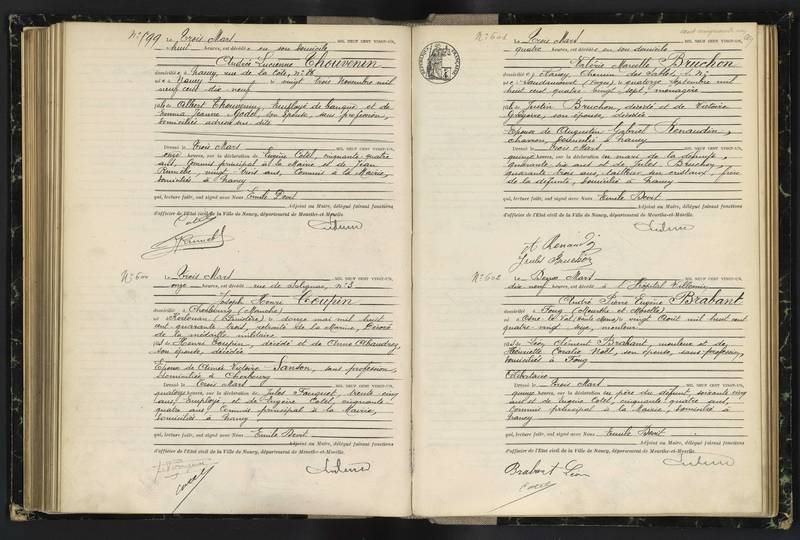 N° 599 Le Trois Mars MIL NEUF CENT VINGT-UN,
huit heures, est décédée en son domicile
Andrée Lucienne Thouvenin
domiciliée à Nancy, rue de la Côte, n°
née à Nancy le vingt trois Novembre mil
neuf cent dix neuf
fille de Albert Thouvenin, employé de banque et de
Jeanne Godel, son épouse, sans profession,
domiciliés
Dressé le Trois Mars MIL NEUF CENT VINGT-UN,
onze heures, sur la déclaration de Eugène Catel, cinquante quatre
ans, Commis principal à la Mairie et de Jean
vingt trois ans, Commis à la Mairie,
domiciliés à Nancy
qui, lecture faite, ont signé avec Nous Emile Devit
Adjoint au Maire, délégué faisant fonctions
d'officier de l'État civil de la Ville de Nancy, département de Meurthe-et-Moselle.
N° 600 Le Trois Mars MIL NEUF CENT VINGT-UN,
onze heures, est décédé rue de n° 3
Joseph Henri Coupin
domicilié à Cherbourg (Manche)
né à (Finistère) le douze mai mil huit
cent quarante trois, retraité de la Marine, Décoré
de la médaille militaire
fils de Henri Coupin, décédé et de
son épouse, décédée
Epoux de Victoire Sanson, sans profession,
domiciliée à Cherbourg
Dressé le Trois Mars MIL NEUF CENT VINGT-UN,
quatorze heures, sur la déclaration de Jules Fouquet, trente cinq
ans, employé et de Eugène Catel, cinquante
quatre ans, Commis principal à la Mairie,
domiciliés à Nancy
qui, lecture faite, ont signé avec Nous Emile Devit
Adjoint au Maire, délégué faisant fonctions
d'officier de l'État civil de la Ville de Nancy, département de Meurthe-et-Moselle.
N° 601 Le Trois Mars MIL NEUF CENT VINGT-UN,
quatre heures, est décédée en son domicile
Valérie Marcelle Bruchon
domiciliée à Nancy, Chemin des Sables
née à (Vosges) le quatorze Septembre mil
huit cent quatre vingt sept, ménagère
fille de Justin Bruchon, décédé et de Victoire
Grégoire, son épouse, décédée
Epouse de Augustin Gabriel Renaudin,
charron, domicilié à Nancy
Dressé le Trois Mars MIL NEUF CENT VINGT-UN,
quinze heures, sur la déclaration du mari de la défunte,
quarante six ans et de Jules Bruchon
quarante trois ans, tailleur sur cristaux, frère
de la défunte, domiciliés à Nancy
qui, lecture faite, ont signé avec Nous Emile Devit
Adjoint au Maire, délégué faisant fonctions
d'officier de l'État civil de la Ville de Nancy, département de Meurthe-et-Moselle.
A Renaudin
Jules Bruchon
N° 602 Le Deux Mars MIL NEUF CENT VINGT-UN,
dix neuf heures, est décédé à l'Hôpital Villemin,
André Pierre Eugène Brabant
domicilié à Foug (Meurthe et Moselle)
né à Osne le Val (Haute Marne) le vingt Août mil huit cent
quatre vingt seize, mouleur
fils de Léon Clément Brabant, mouleur et de
Henriette Coralie Noël, son épouse, sans profession,
domiciliés à Foug
Célibataire
Dressé le Trois Mars MIL NEUF CENT VINGT-UN,
quinze heures, sur la déclaration du père du défunt, soixante cinq
ans et de Eugène Catel, cinquante quatre ans,
Commis principal à la Mairie, domicilié à
Nancy
qui, lecture faite, ont signé avec Nous Emile Devit
Adjoint au Maire, délégué faisant fonctions
d'officier de l'État civil de la Ville de Nancy, département de Meurthe-et-Moselle.
Brabant Léon